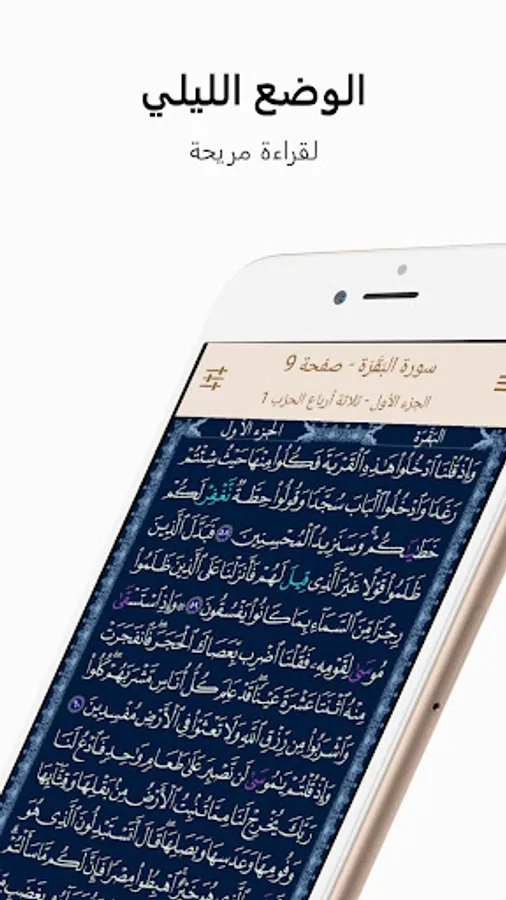 الوضع الليلي
لقراءة مريحة
سورة البَقَرَة - صفحة 9
الجزء الأول - ثلاثة أرباع الحزب 1
البَقَرَة الجزء الأول
وَإِذْ قُلْنَا ٱدْخُلُوا۟ هَٰذِهِ ٱلْقَرْيَةَ فَكُلُوا۟ مِنْهَا حَيْثُ شِئْتُمْ
رَغَدًا وَٱدْخُلُوا۟ ٱلْبَابَ سُجَّدًا وَقُولُوا۟ حِطَّةٌ نَّغْفِرْ لَكُمْ
خَطَٰيَٰكُمْ وَسَنَزِيدُ ٱلْمُحْسِنِينَ ٥٨ فَبَدَّلَ ٱلَّذِينَ
ظَلَمُوا۟ قَوْلًا غَيْرَ ٱلَّذِى قِيلَ لَهُمْ فَأَنزَلْنَا عَلَى ٱلَّذِينَ ظَلَمُوا۟
رِجْزًا مِّنَ ٱلسَّمَآءِ بِمَا كَانُوا۟ يَفْسُقُونَ ٥٩ ۞ وَإِذِ ٱسْتَسْقَىٰ
مُوسَىٰ لِقَوْمِهِۦ فَقُلْنَا ٱضْرِب بِّعَصَاكَ ٱلْحَجَرَ فَٱنفَجَرَتْ
مِنْهُ ٱثْنَتَا عَشْرَةَ عَيْنًا قَدْ عَلِمَ كُلُّ أُنَاسٍ مَّشْرَبَهُمْ كُلُوا۟
وَٱشْرَبُوا۟ مِن رِّزْقِ ٱللَّهِ وَلَا تَعْثَوْا۟ فِى ٱلْأَرْضِ مُفْسِدِينَ ٦٠
وَإِذْ قُلْتُمْ يَٰمُوسَىٰ لَن نَّصْبِرَ عَلَىٰ طَعَامٍ وَٰحِدٍ فَٱدْعُ لَنَا
رَبَّكَ يُخْرِجْ لَنَا مِمَّا تُنۢبِتُ ٱلْأَرْضُ مِنۢ بَقْلِهَا وَقِثَّآئِهَا
وَفُومِهَا وَعَدَسِهَا وَبَصَلِهَا قَالَ أَتَسْتَبْدِلُونَ ٱلَّذِى هُوَ
هُوَ خَيْرٌ ٱهْبِطُوا۟ مِصْرًا فَإِنَّ لَكُم مَّا سَأَلْتُمْ